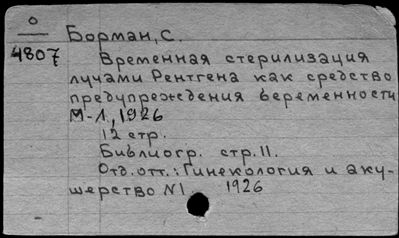 О
4807
Борман, С.
Временная стерилизация
лучами Рентгена как средство
предупреждения беременности
М-Л, 1926
12 стр.
Библиогр. стр. 11.
Отд. отт.: Гинекология и аку-
шерство №1. 1926